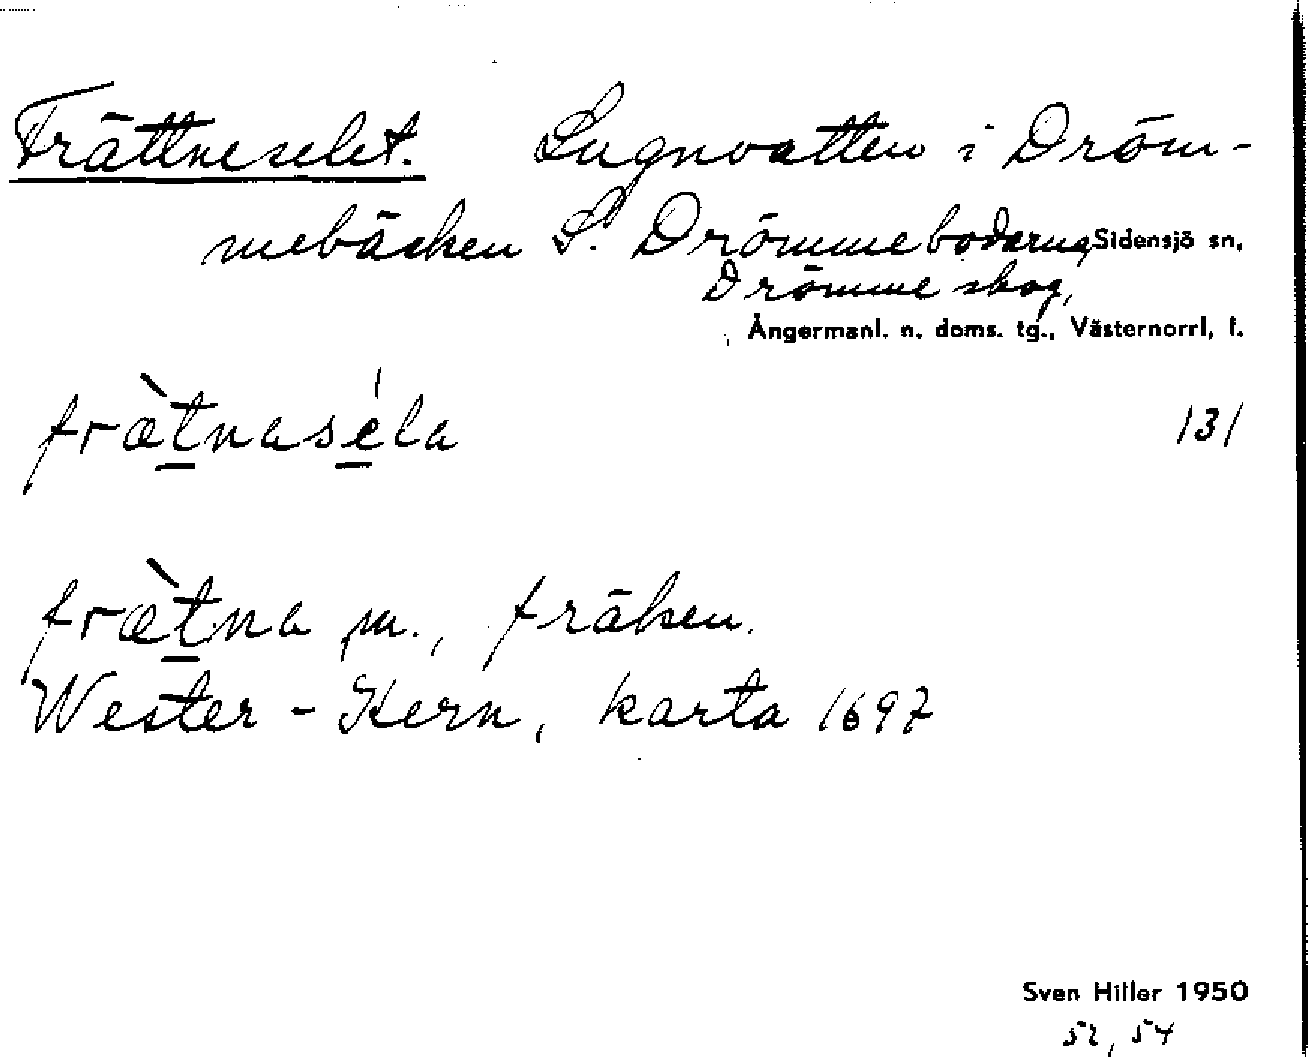 Frättneselet. Lugnvatten i Dröm-
mebäcken S. Drömmebodarna, Sidensjö sn,
Drömme skog,
Ångermanl. n. doms. tg., Västernorrl. l.
fræ̀tnasé̍la 131
fræ̀tna m., fräken.
Wester - Kern, karta 1697
Sven Hiller 1950
52, 54